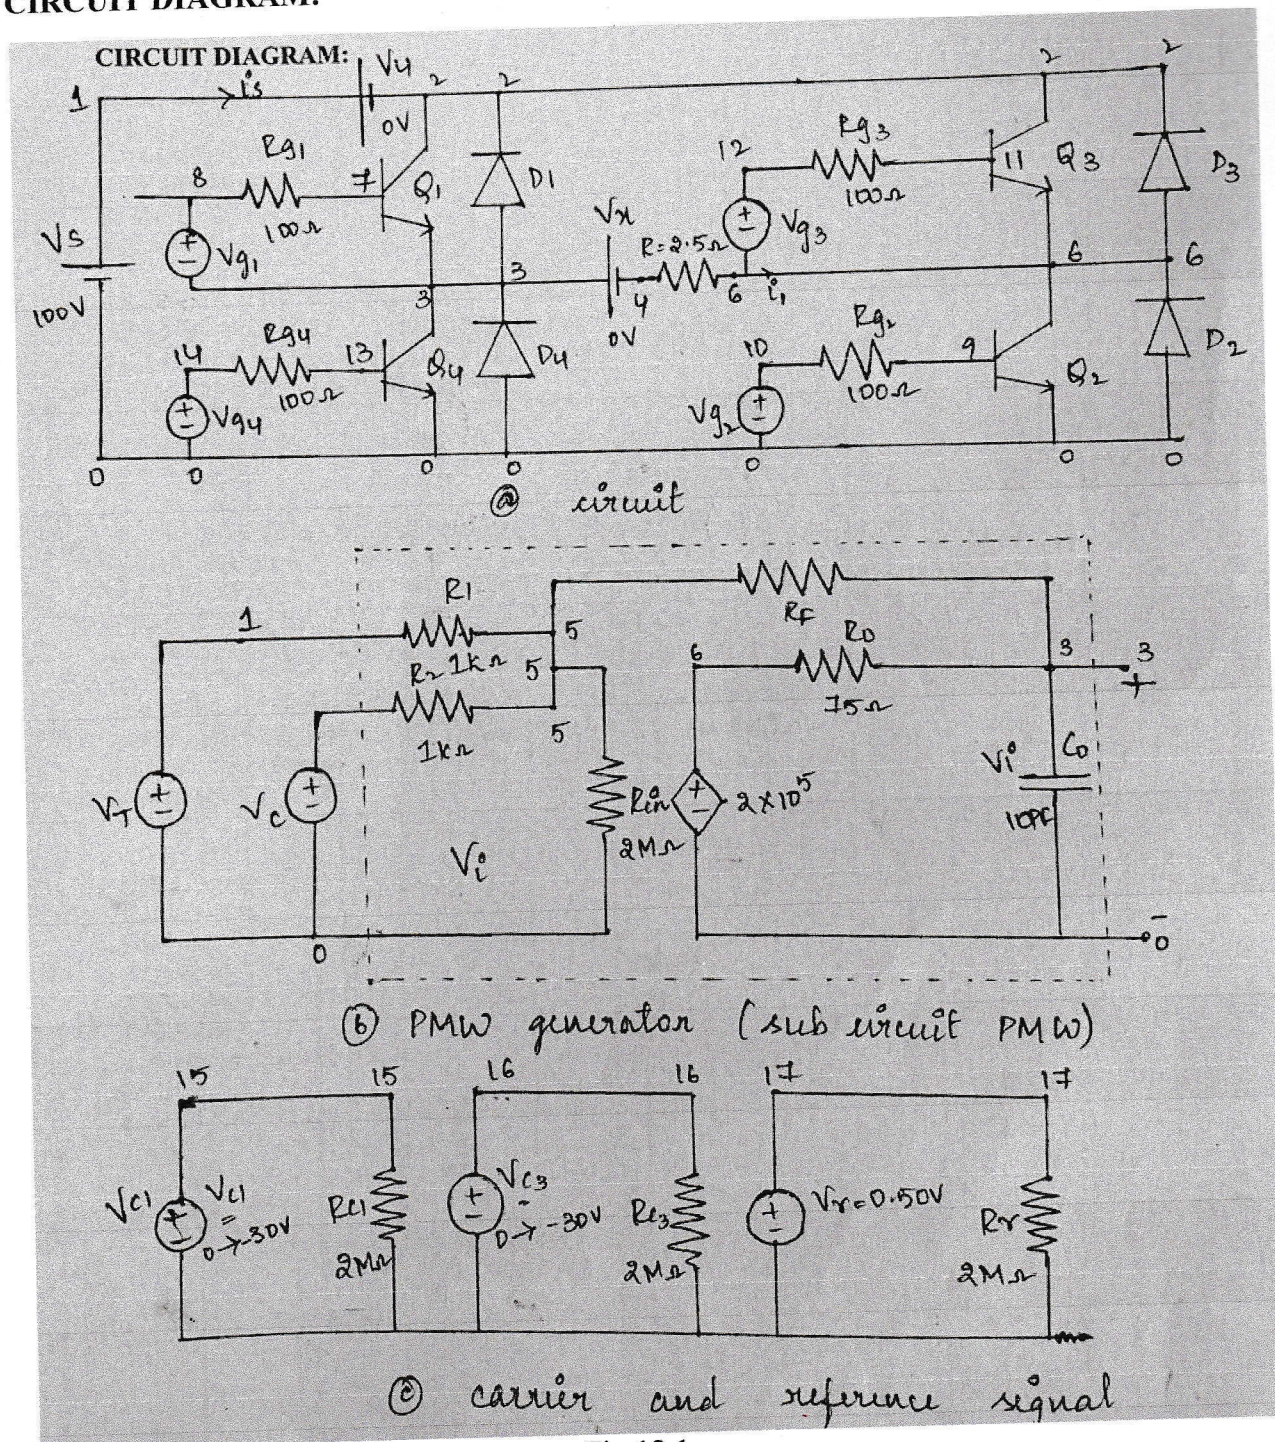 CIRCUIT DIAGRAM:
CIRCUIT DIAGRAM:
1
is
V4
0V
2
2
2
2
Rg1
8
100Ω
7
Q1
D1
Vg1
Vs
100V
3
3
Vx
0V
4
R=2.5Ω
6
i1
12
Rg3
100Ω
11
Q3
D3
Vg3
6
6
Rg4
14
100Ω
13
Q4
D4
Vg4
10
Rg2
100Ω
9
Q2
D2
Vg2
0
0
0
0
0
0
0
ⓐ circuit
1
R1
1kΩ
5
RF
R2
1kΩ
5
5
6
RO
75Ω
3
3
+
VT
Vc
Vi
Rin
2MΩ
2x10⁵
Vi
Co
10PF
0
-
0
ⓑ PMW generator (sub circuit PMW)
15
15
16
16
17
17
Vc1
Vc1
=
0→-30V
Rc1
2MΩ
Vc3
=
0→-30V
Rc3
2MΩ
Vr=0.50V
Rr
2MΩ
ⓒ carrier and reference signal